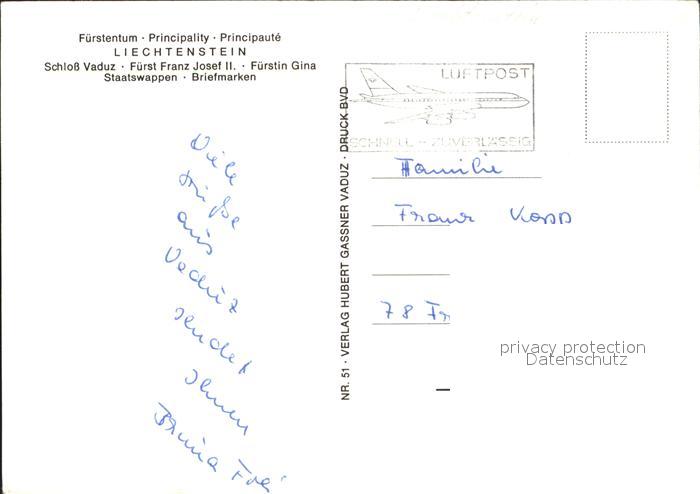 Fürstentum · Principality · Principauté
LIECHTENSTEIN
Schloß Vaduz · Fürst Franz Josef II. · Fürstin Gina
Staatswappen · Briefmarken
Viele
Grüße
aus
Vaduz
sendet
Ihnen
NR. 51 · VERLAG HUBERT GASSNER VADUZ · DRUCK BVD
LUFTPOST
SCHNELL - ZUVERLÄSSIG
Familie
Franz
78 Fr
privacy protection
Datenschutz